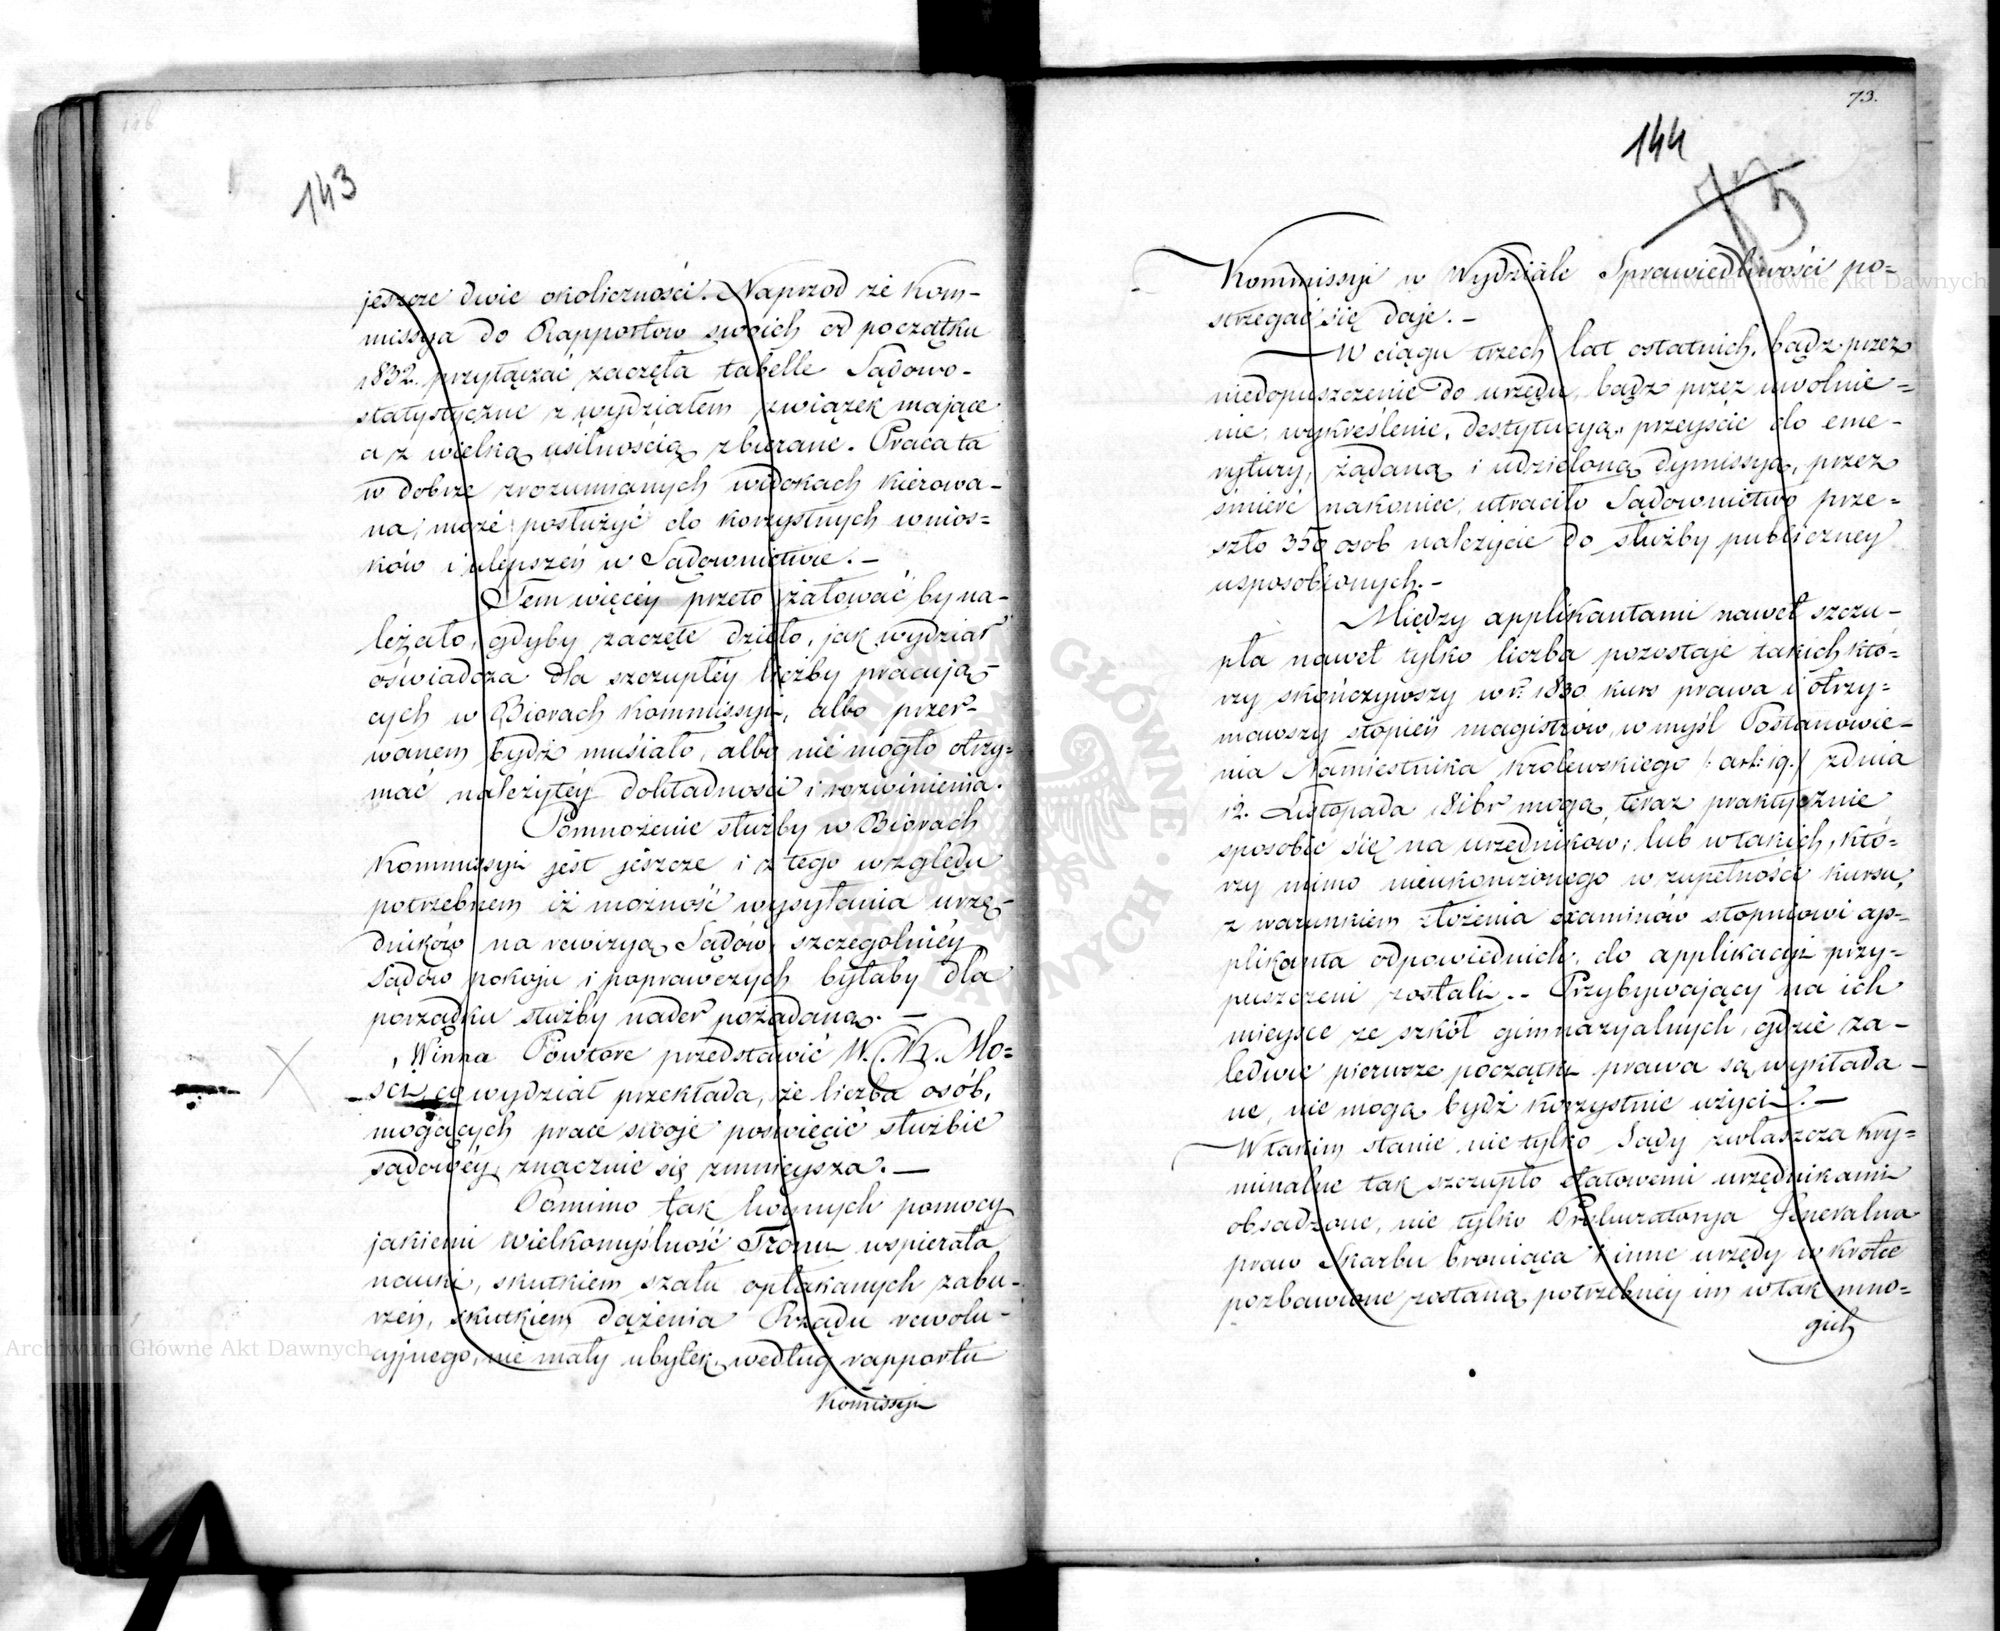 143
jeszcze dwie okoliczności. Naprzod że Kom-
missya do Rapportow swoich od początku
1832. przyłączać zaczęła tabelle Sądowo-
statystyczne z wydziałem związek mające
a z wielką usilnością zbierane. Praca ta
w dobrze zrozumianych widokach kierowa-
na, może posłużyć do korzystnych wnios=
ków i ulepszeń w Sądownictwie. -
Tem więcéy przeto żałować by na-
leżało, gdyby zaczęte dzieło, jak wydział
oświadcza dla szczupłéy liczby pracują-
cych w Biorach Kommissyi, albo przer-
wanem bydź musiało, albo nie mogło otrzy=
mać należytéy dokładności i rozwinienia.
Pomnożenie służby w Biorach
Kommissyi jest jeszcze i z tego względu
potrzebnem iż możność wysyłania urzę-
dników na rewizyą Sądów, szczególniéy
Sądów pokoju i poprawczych byłaby dla
porządku służby nader pożądaną. -
Winna Powtóre przedstawić W. C. K. Mo=
ści, co wydział przekłada, że liczba osób,
mogących prace swoje poświęcić służbie
sądowéy, znacznie się zmnieysza. -
Pomimo tak hoynych pomocy
jakiemi wielkomyślność Tronu wspierała
nauki, skutkiem szału opłakanych zabu-
rzeń, skutkiem dążenia Rządu rewolu-
cyjnego, nie mały ubytek, według rapportu
Kommissyi
73.
144
73
Kommissyi w Wydziale Sprawiedliwości po=
strzegać się daje. -
W ciągu trzech lat ostatnich, bądz przez
niedopuszczenie do urzędu, bądz przez uwolnie=
nie, wykreślenie, destytucyą, przeyście do eme-
rytury, żądaną i udzieloną dymissyą, przez
śmierć nakoniec, utraciło Sądownictwo prze=
szło 350 osob należycie do służby publiczney
usposobionych. -
Między applikantami nawet szczu-
pła nawet tylko liczba pozostaje takich któ=
rzy skończywszy w r. 1830 kurs prawa i otrzy=
mawszy stopień magistrów, w myśl Postanowie-
nia Namiestnika Królewskiego /: art: 19. / z dnia
12. Listopada 1816r mogą teraz praktycznie
sposobić się na urzędnikow; lub w takich, któ=
rzy mimo nieukończonego w zupełności kursu,
z warunkiem złożenia examinów stopniowi ap=
plikanta odpowiednich, do applikacyi przy=
puszczeni zostali. - Przybywający na ich
mieysce ze szkół gimnazyalnych, gdzie za-
ledwie pierwsze początki prawa są wykłada-
ne, nie mogą bydź korzystnie użyci. -
W takim stanie nie tylko Sądy zwłaszcza kry=
minalne tak szczupło etatowemi urzędnikami
obsadzone, nie tylko Prokuratorya Jeneralna
praw Skarbu broniąca i inne urzędy w krótce
pozbawione zostaną potrzebney im w tak mno=
gich
Archiwum Główne Akt Dawnych
Archiwum Główne Akt Dawnych
ARCHIWUM GŁÓWNE AKT DAWNYCH